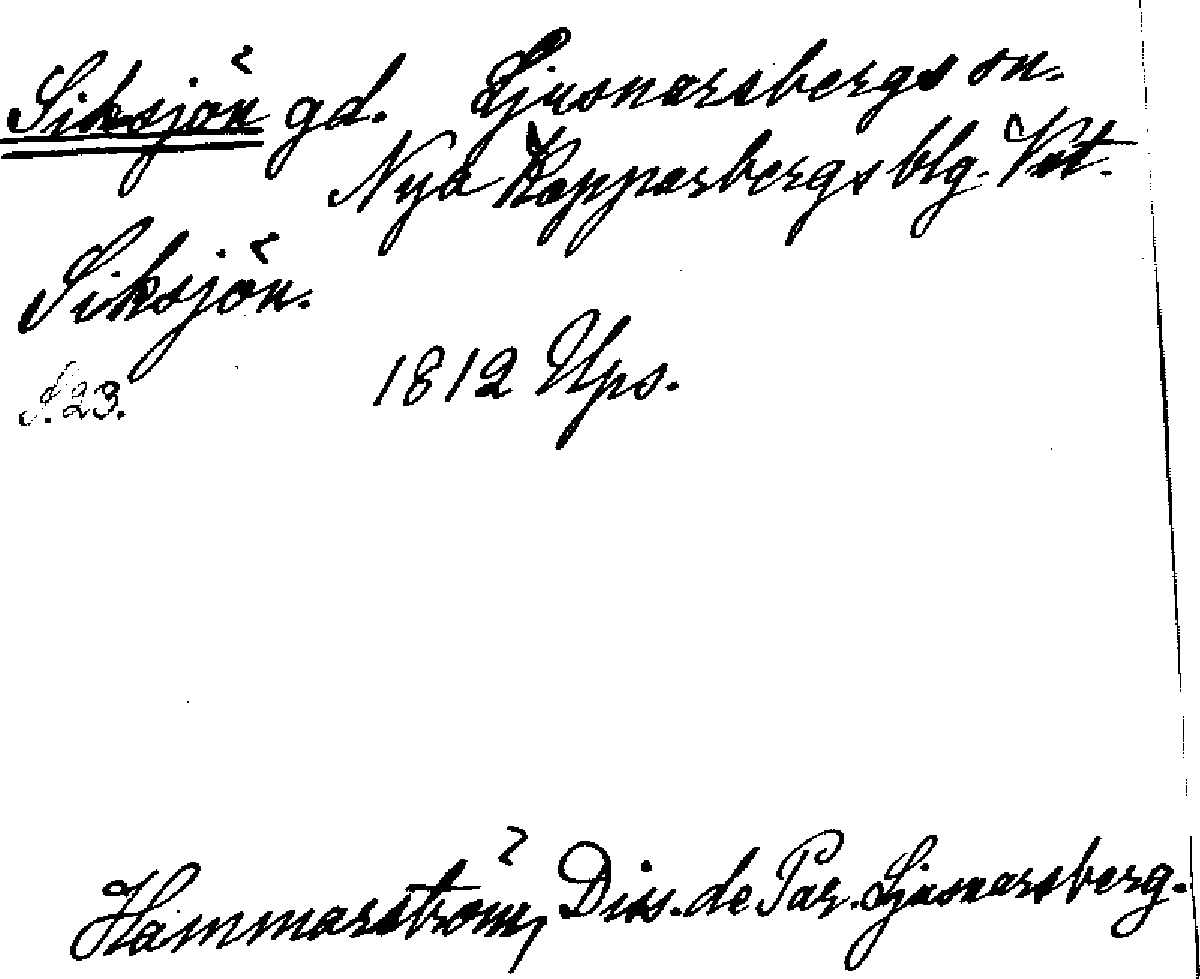 Siksjön gd. Ljusnarsbergs sn.
Nya Kopparbergs blg. Vst.
Siksjön.
S. 23. 1812 Ups.
Hammarström, Diss. de Par. Ljusnarsberg.